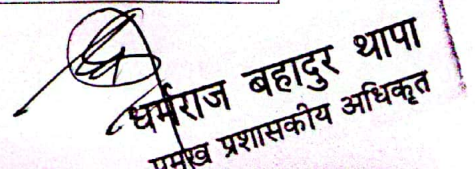 धर्मराज बहादुर थापा
प्रमुख प्रशासकीय अधिकृत